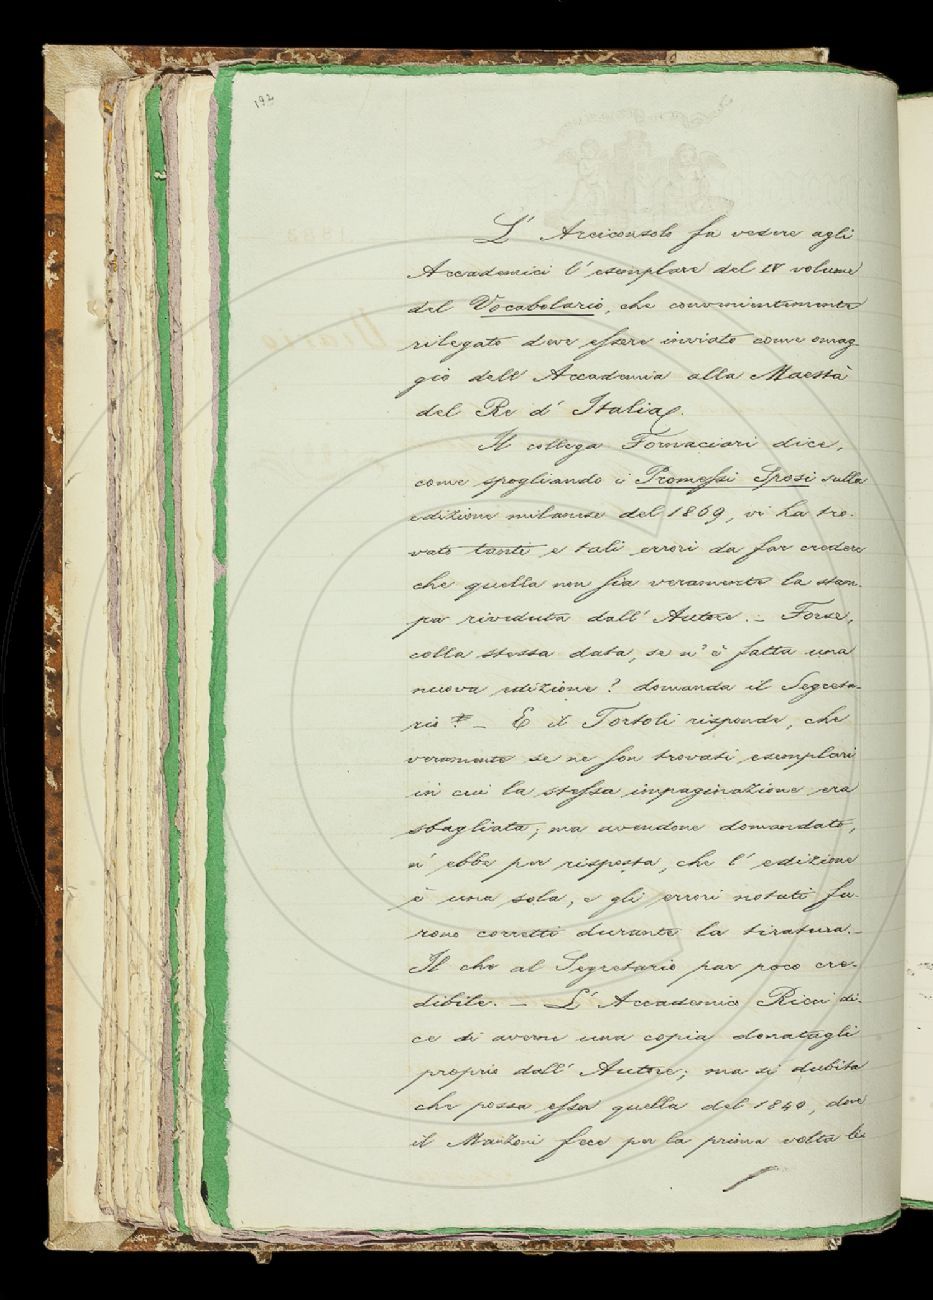 192
L' Arciconsolo fa vedere agli
Accademici l' esemplare del IV volume
del Vocabolario, che convenientemente
rilegato deve essere inviato come omag-
gio dell' Accademia alla Maestà
del Re d' Italia.
Il collega Fornaciari dice,
come spogliando i Promessi Sposi sulla
edizione milanese del 1869, vi ha tro-
vato tante e tali errori da far credere
che quella non sia veramente la stam-
pa riveduta dall' Autore. – Forse,
colla stessa data, se n' è fatta una
nuova edizione? domanda il Segreta-
rio – E il Tortoli risponde, che
veramente se ne son trovati esemplari
in cui la stessa impaginazione era
sbagliata; ma avendone domandato,
n' ebbe per risposta, che l' edizione
è una sola, e gli errori notati fu-
rono corretti durante la tiratura. –
Il che al Segretario par poco cre-
dibile. – L' Accademico Ricci di-
ce di averne una copia donatagli
proprio dall' Autore; ma si dubita
che possa essa quella del 1840, dove
il Manzoni fece per la prima volta li